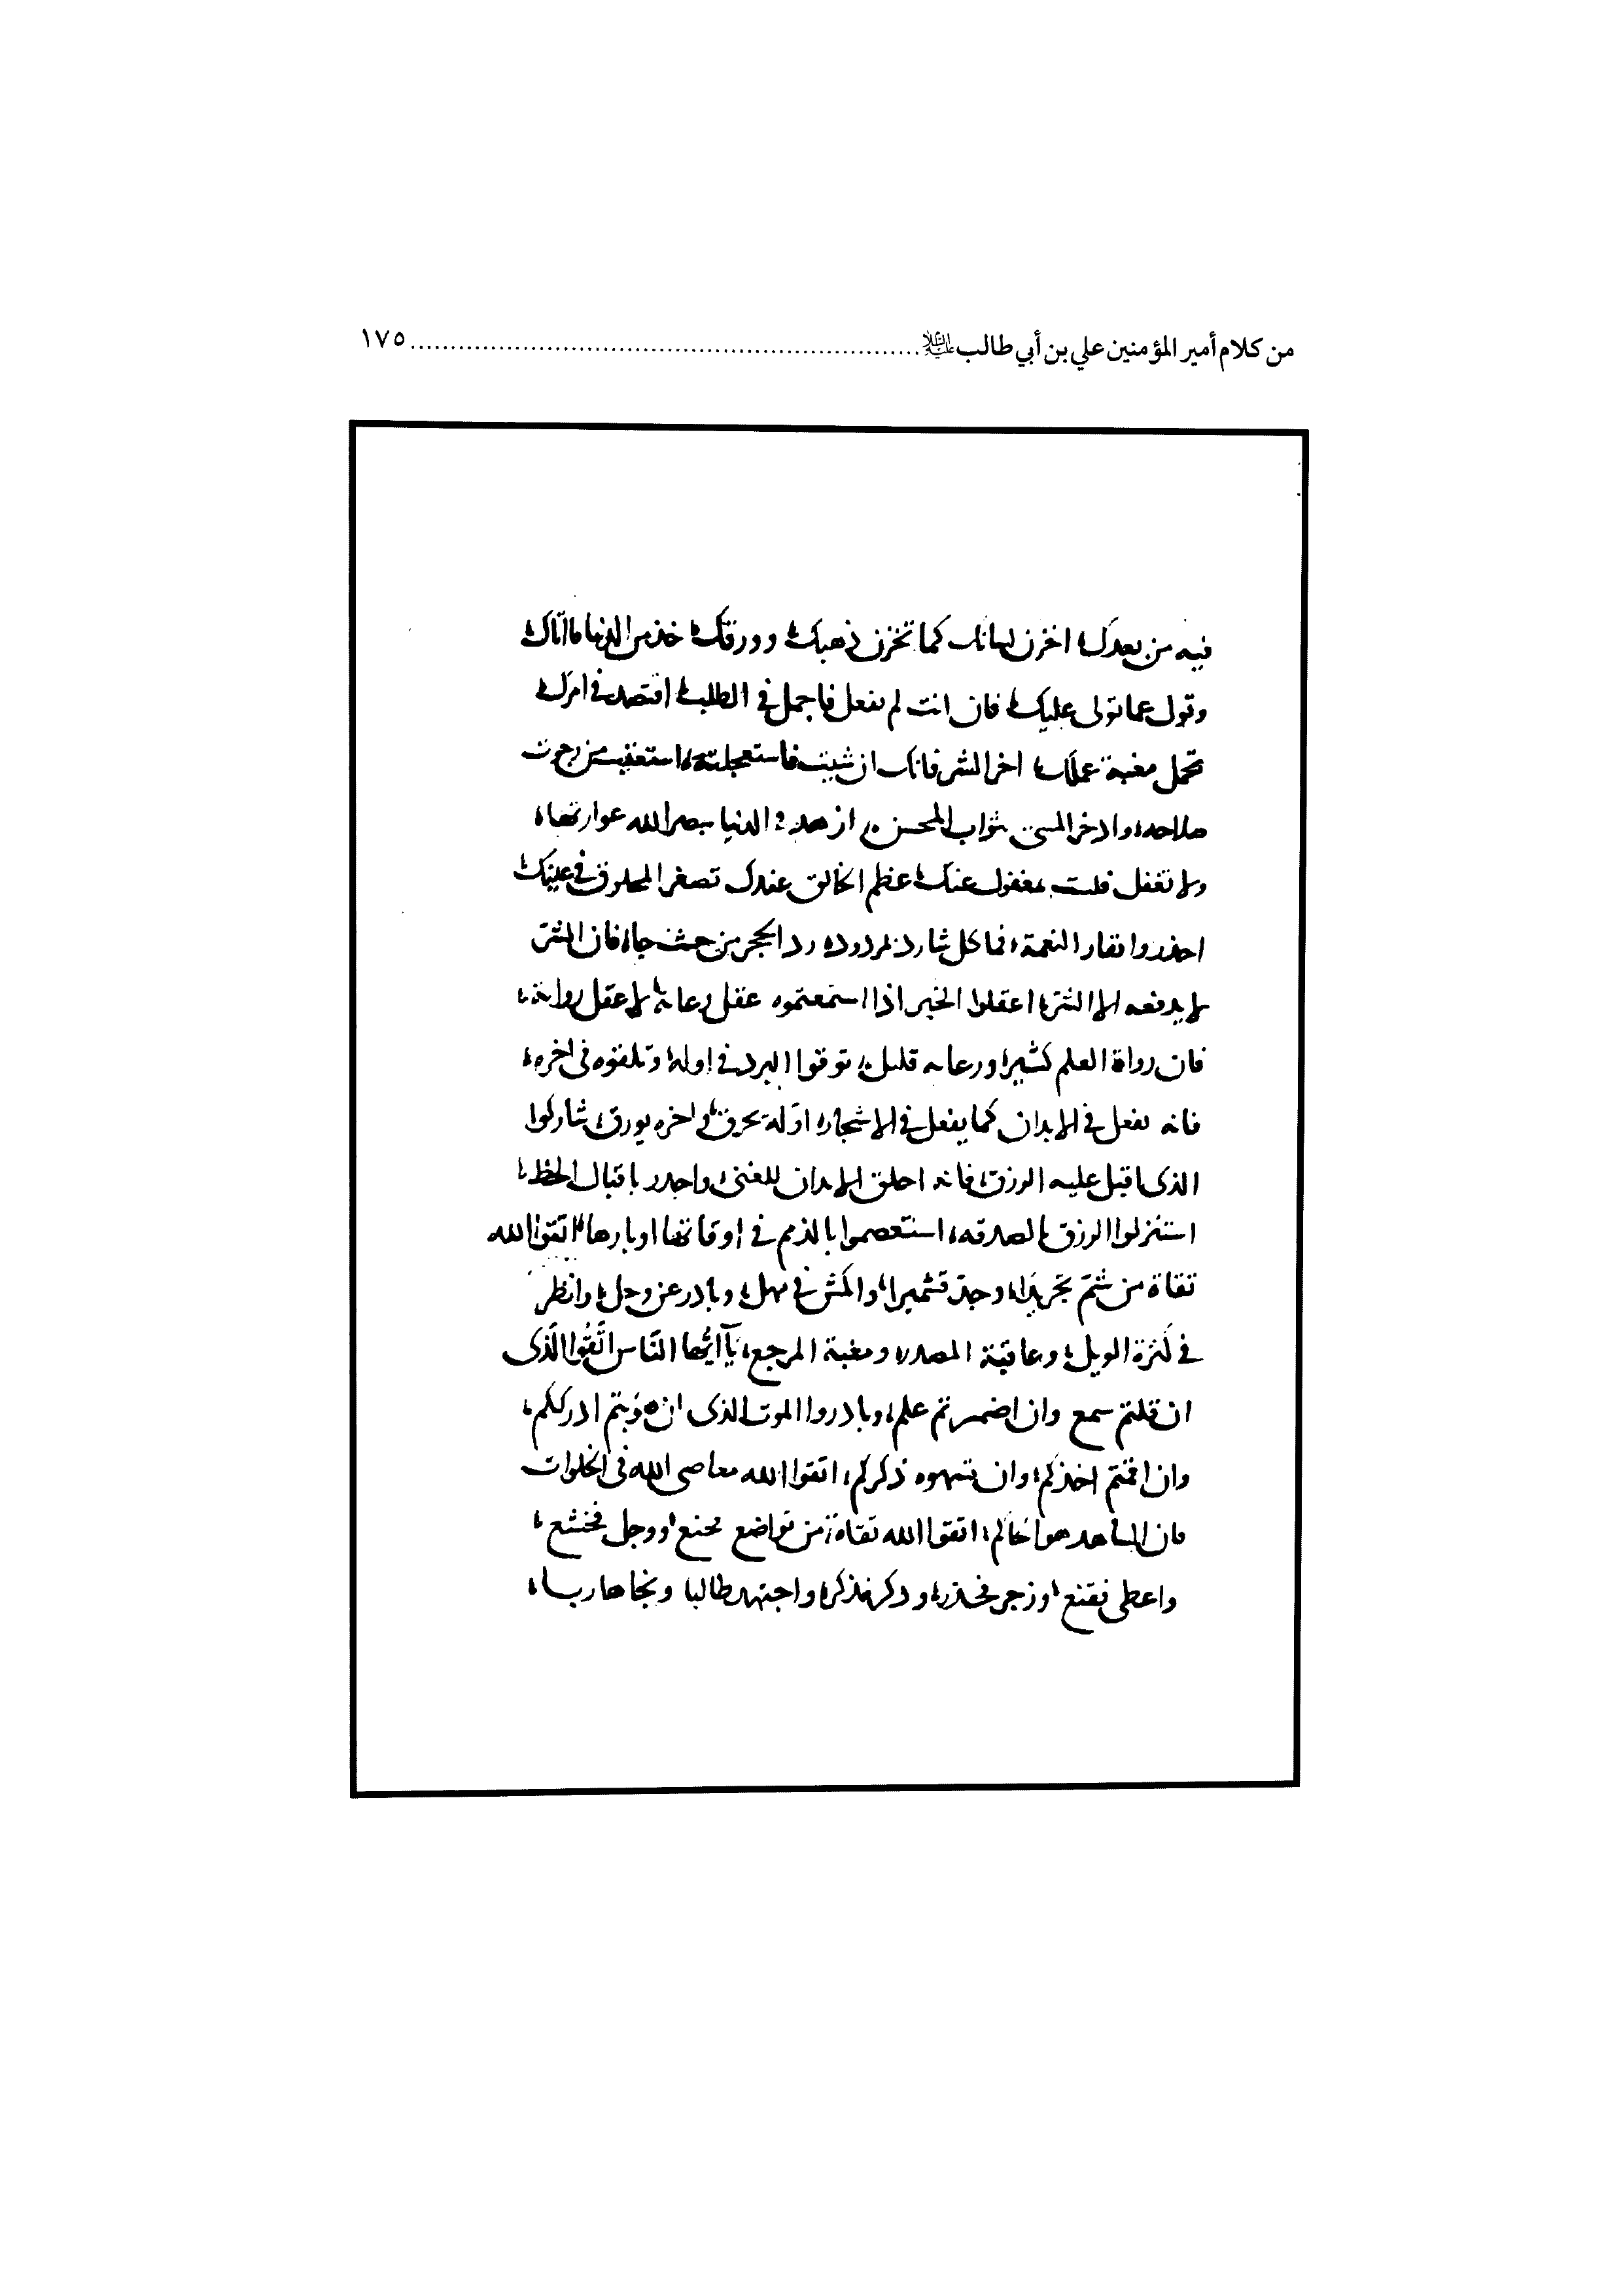 من كلام أمير المؤمنين علي بن أبي طالب عليه السلام ........ ١٧٥
فيه من بعدك، اخزن لسانك كما تخزن ذهبك وورقك، خذ من الدنيا ما اتاك
وتول عما تولى عليك فان انت لم تفعل فاجمل في الطلب، اقتصد في امرك
تحمل مغبة عملك، اخر الشر فانك ان شيت فاستعجلته، استعتب من رجوت
صلاحه، وادخر المسى بثواب المحسن، ازهد في الدنيا يبصر الله عوارتها،
ولا تغفل فلست بمغفول عنك، عظم الخالق عندك تصغر المخلوق في عينك
احذروا نفار النعمة، فما كل شارد بمردود، رد الحجر من حيث جاء، فان الشر
لا يدفعه الا الشر، اعقلوا الخبر اذا استمعتموه عقل رعاية لا عقل رواية،
فان رواة العلم كثير، ورعاته قليل، توقوا البرد في اوله، وتلقوه في اخره،
فانه يفعل في الابدان كما يفعل في الاشجار، اوله يحرق، واخره يورق، شاركوا
الذى اقبل عليه الرزق، فانه اخلق الابدان للغنى، واجدر باقبال الحظ،
استنزلوا الرزق بالصدقه، استعصموا بالذمم في اوقاتها اوبارها، اتقوا الله
تقاة من شمر تجريدا، وجد تشميرا، واكمش في مهل، وبادر عن وجل، وانظر
في كثرة الويل، وعاقبة المصدر، ومغبة المرجع، يآ ايُّها النَّاس اتَّقُوا الَّذى
ان قلتم سمع وان اضمرتم علم، وبادروا الموت الذى ان هربتم ادرككم،
وان اقمتم اخذكم، وان نسيتموه ذكركم، اتقوا الله معاصى الله فى الخلوات
فان الشاهد هو الحاكم، اتقوا الله تقاة من تواضع فخنع، ووجل فخشع،
واعطى فقنع، وزجر فحذر، وذكر فذكر، واجتهد طالبا ونجا هاربا،